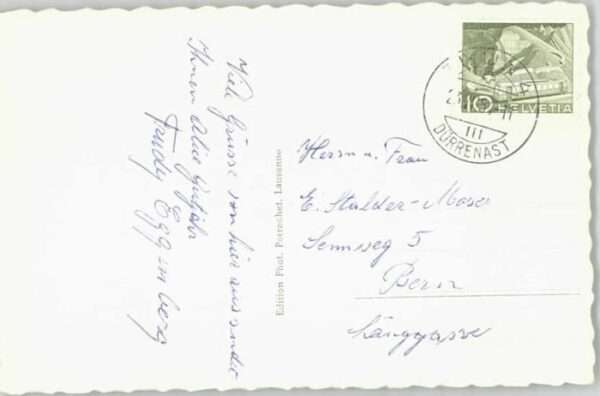 Viele Grüsse von hier aus sendet
Ihnen Alie Gutjahr
Trudy Eggenberg
Edition Phot. Perrochet, Lausanne
10 HELVETIA
III
DÜRRENAST
Herrn u. Frau
E. Stalder-Moser
Sennweg 5
Bern
Länggasse